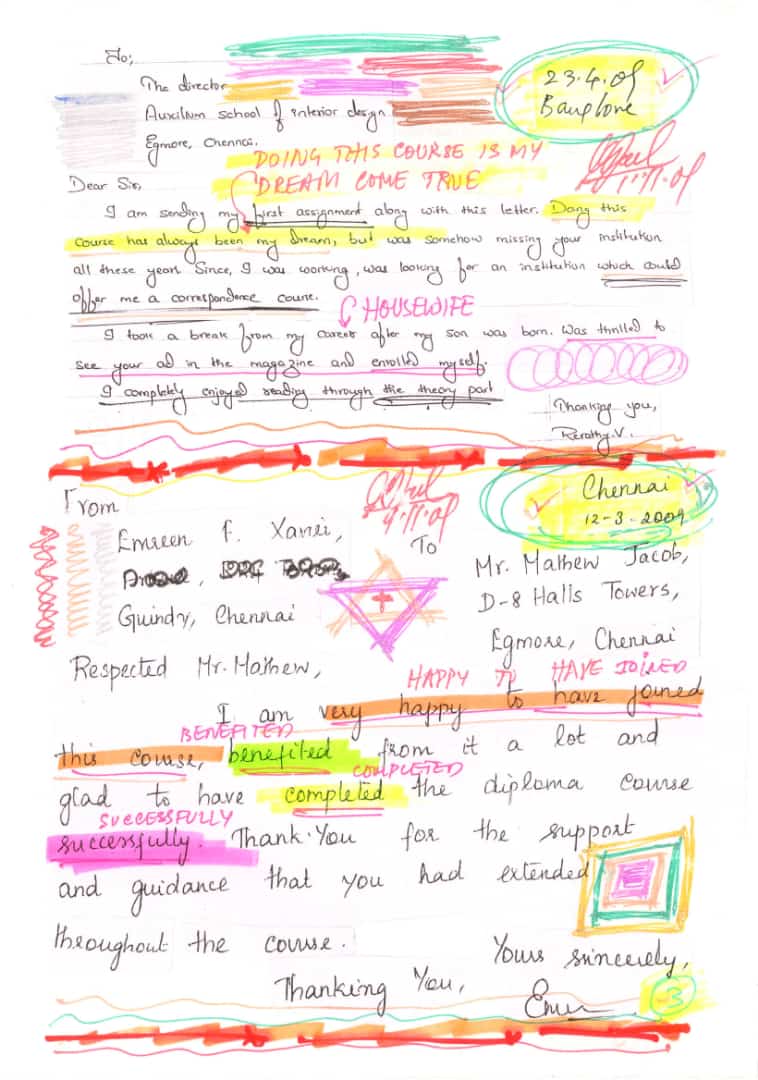 To,
The director
Auxilium school of interior design
Egmore, Chennai.
23.4.09
Banglore
DOING THIS COURSE IS MY
DREAM COME TRUE
1.11.09
Dear Sir,
I am sending my first assignment along with this letter. Doing this
course has always been my dream, but was somehow missing your institution
all these years. Since, I was working, was looking for an institution which could
offer me a correspondence course.
HOUSEWIFE
I took a break from my career after my son was born. Was thrilled to
see your ad in the magazine and enrolled myself.
I completely enjoyed reading through the theory part
Thanking you,
Revathy.V.
From
4.11.09
Chennai
12-3-2009
Emreen F. Xavier,
Guindy, Chennai
To
Mr. Mathew Jacob,
D-8 Halls Towers,
Egmore, Chennai
Respected Mr. Mathew,
HAPPY TO HAVE JOINED
I am very happy to have joined
BENEFITED
this course, benefited from it a lot and
COMPLETED
glad to have completed the diploma course
SUCCESSFULLY
successfully. Thank You for the support
and guidance that you had extended
throughout the course.
Yours sincerely,
Thanking You,
3